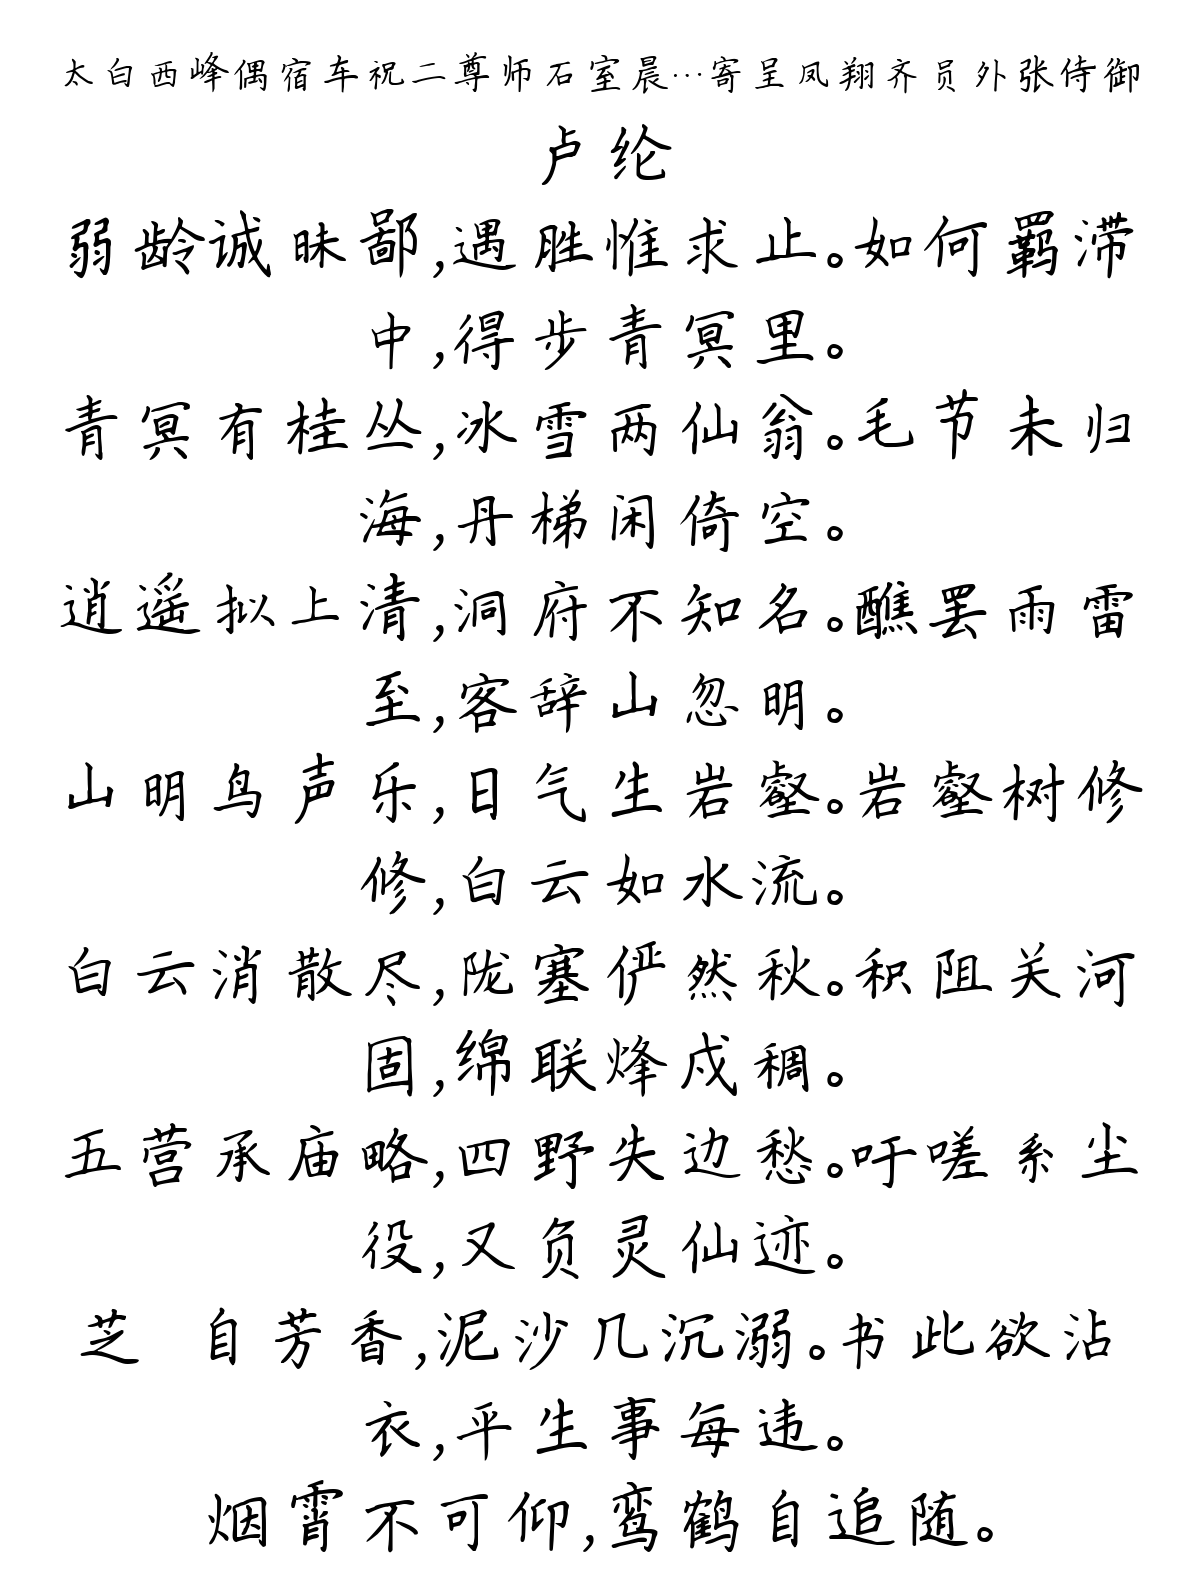 太白西峰偶宿车祝二尊师石室晨…寄呈凤翔齐员外张侍御
卢纶
弱龄诚昧鄙,遇胜惟求止。如何羁滞
中,得步青冥里。
青冥有桂丛,冰雪两仙翁。毛节未归
海,丹梯闲倚空。
逍遥拟上清,洞府不知名。醮罢雨雷
至,客辞山忽明。
山明鸟声乐,日气生岩壑。岩壑树修
修,白云如水流。
白云消散尽,陇塞俨然秋。积阻关河
固,绵联烽戍稠。
五营承庙略,四野失边愁。吁嗟系尘
役,又负灵仙迹。
芝 自芳香,泥沙几沉溺。书此欲沾
衣,平生事每违。
烟霄不可仰,鸾鹤自追随。